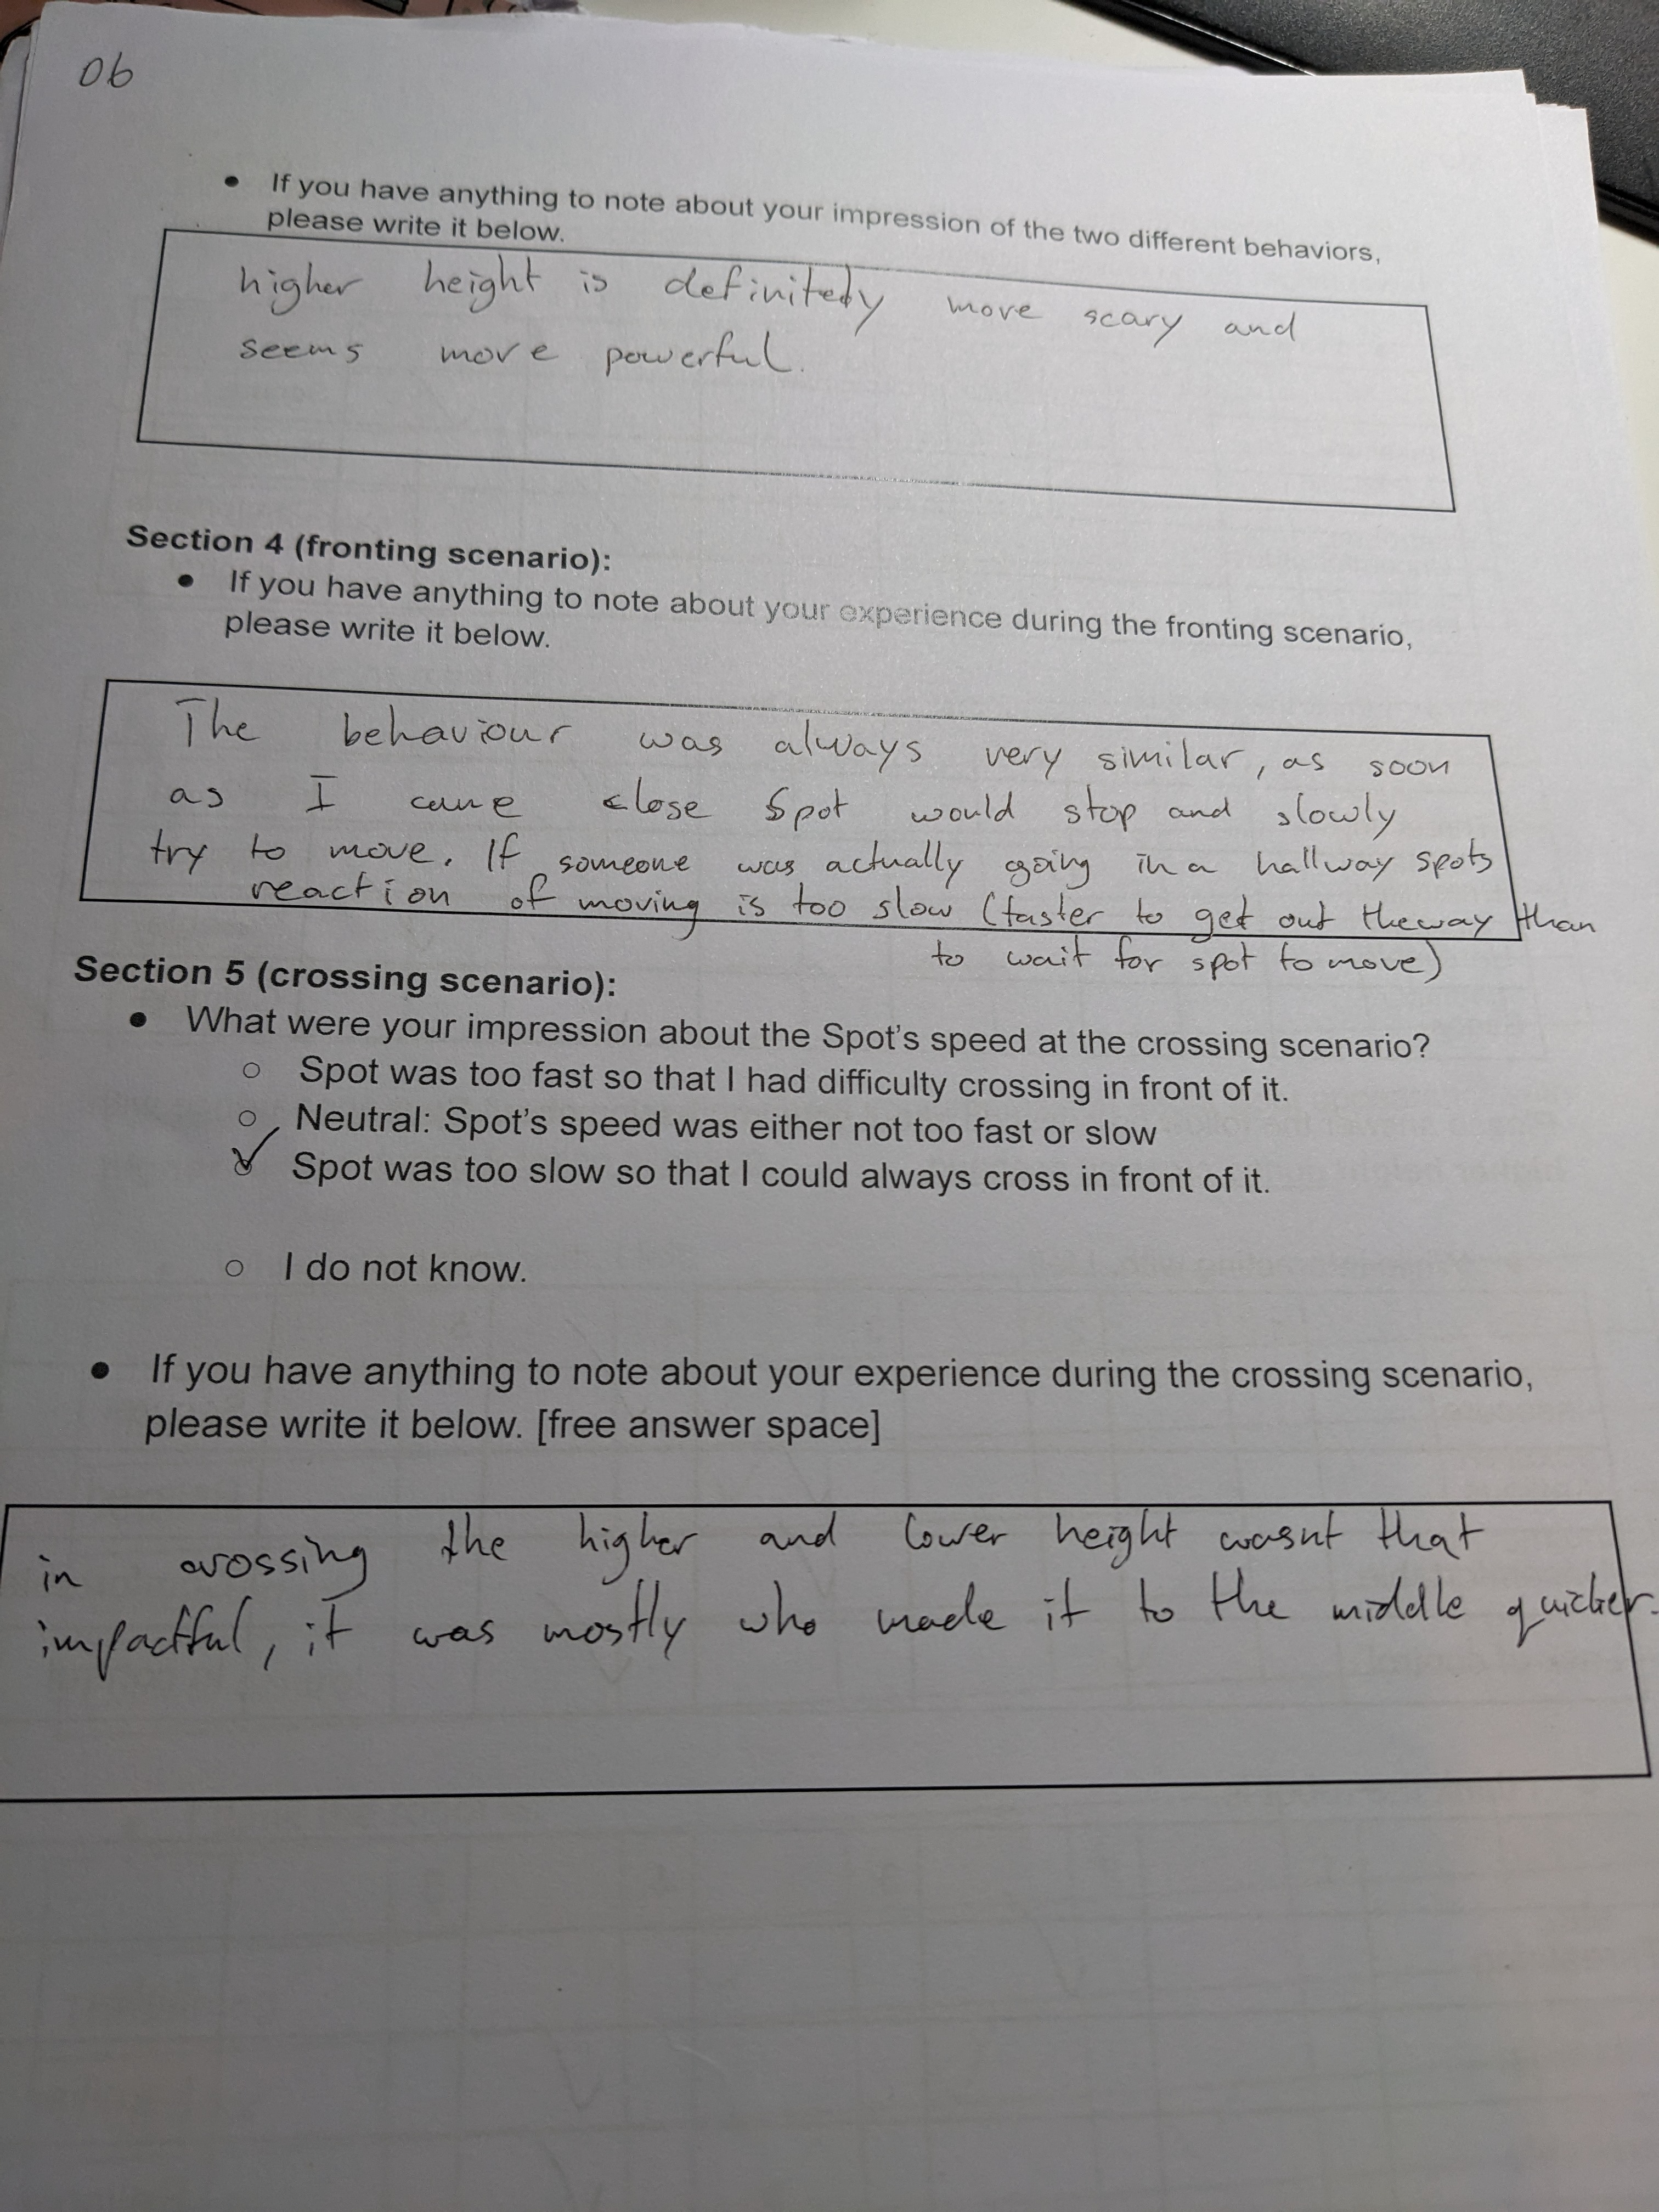 06
• If you have anything to note about your impression of the two different behaviors,
please write it below.
higher height is definitely more scary and
seems more powerful.
Section 4 (fronting scenario):
• If you have anything to note about your experience during the fronting scenario,
please write it below.
The behaviour was always very similar, as soon
as I came close Spot would stop and slowly
try to move. If someone was actually going in a hallway spots
reaction of moving is too slow (faster to get out theway than
to wait for spot to move)
Section 5 (crossing scenario):
• What were your impression about the Spot's speed at the crossing scenario?
○ Spot was too fast so that I had difficulty crossing in front of it.
○ Neutral: Spot's speed was either not too fast or slow
✓ Spot was too slow so that I could always cross in front of it.
○ I do not know.
• If you have anything to note about your experience during the crossing scenario,
please write it below. [free answer space]
in crossing the higher and lower height wasnt that
impactful, it was mostly who made it to the middle quicker.